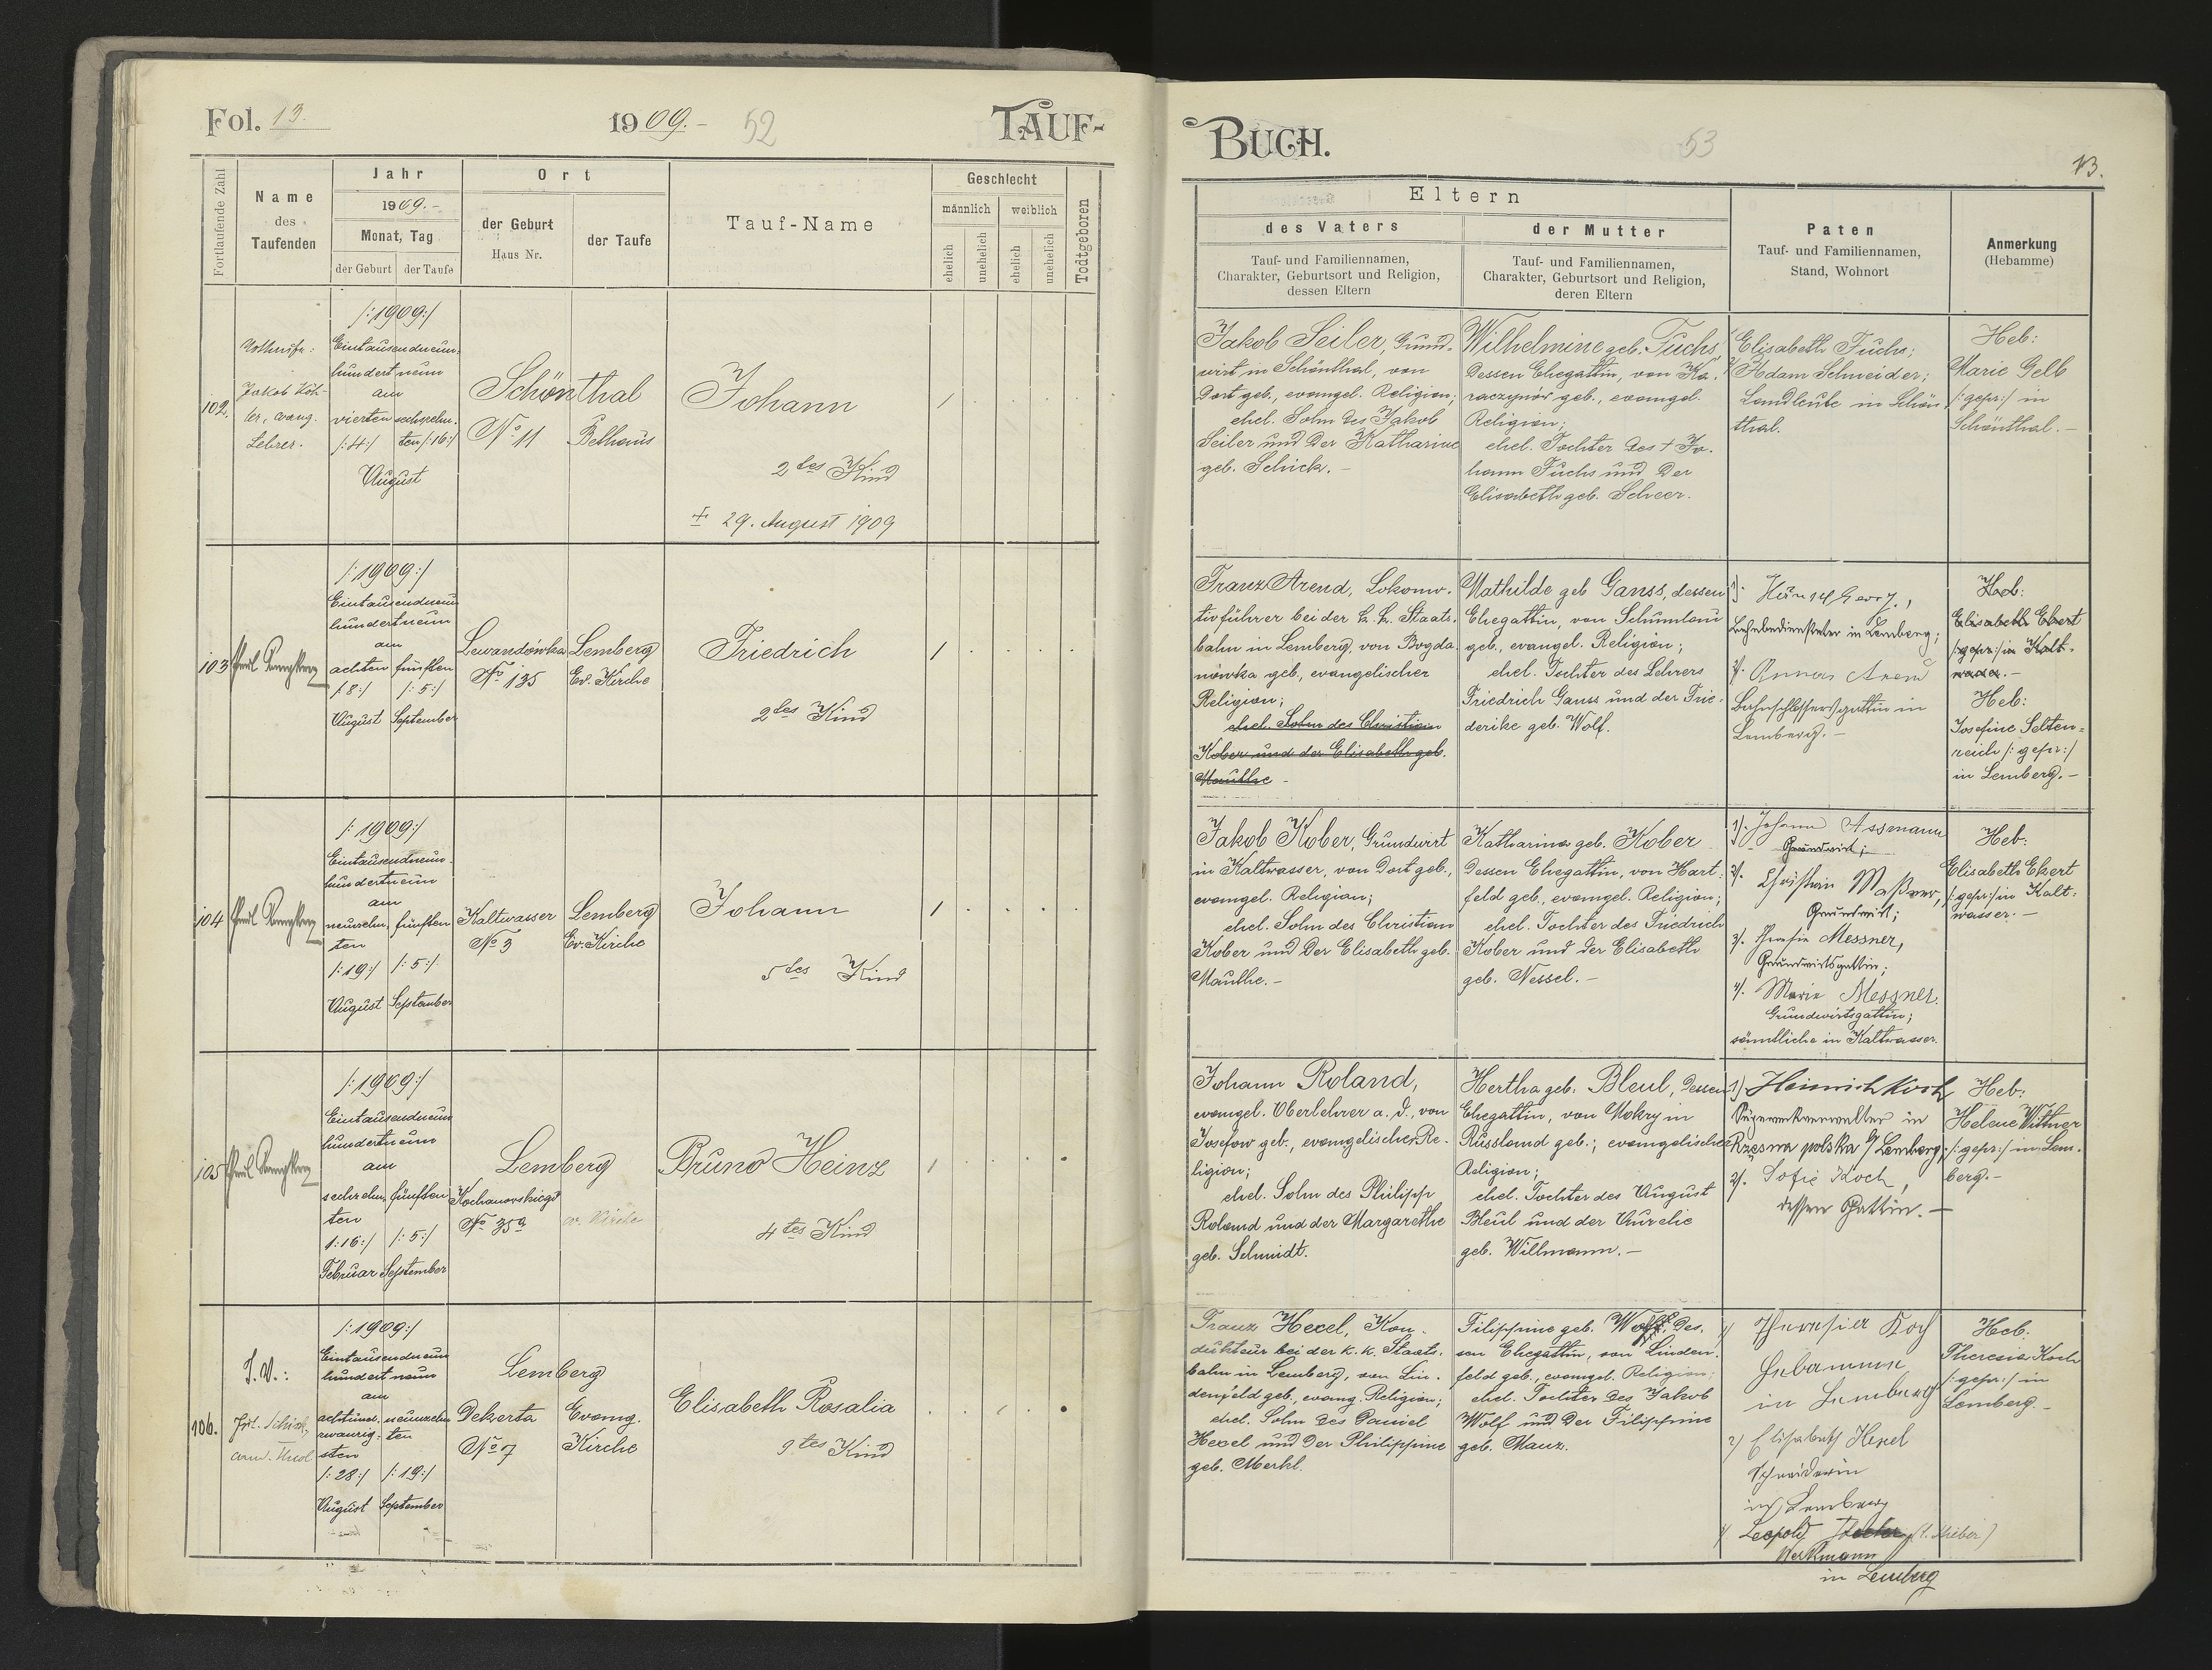 Fol. 13.
1909.–
52
TAUF-
Fortlaufende Zahl
Name
des
Taufenden
Jahr
1909.–
Monat, Tag
der Geburt
der Taufe
Ort
der Geburt
Haus Nr.
der Taufe
Tauf-Name
Geschlecht
männlich
weiblich
ehelich
unehelich
ehelich
unehelich
Todtgeboren
102.
Jakob Köh-
ler, evang.
Lehrer.
/:1909:/
Eintausendneun-
hundertneun
am
vierten
/:4:/
sechzehn-
ten /:16:/
August
Schönthal
No 11
Bethaus
Johann
2tes Kind
+ 29. August 1909
1
103
/:1909:/
Eintausendneun
hundertneun
am
achten
/:8:/
August
fünften
/:5:/
September
Lewandówka
No 135
Lemberg
Ev. Kirche
Friedrich
2tes Kind
1
104
/:1909:/
Eintausendneun-
hundertneun
am
neunzehn-
ten
/:19:/
August
fünften
/:5:/
September
Kaltwasser
No 3
Lemberg
Ev. Kirche
Johann
5tes Kind
1
105
/:1909:/
Eintausendneun
hundertneun
am
sechzehn-
ten
/:16:/
Februar
fünften
/:5:/
September
Lemberg
Kochanowskiego
No 35a
ev. Kirche
Bruno Heinz
4tes Kind
1
106.
I. V.:
Jul. Schick,
cand. theol
/:1909:/
Eintausendneun
hundertneun
am
achtund-
zwanzig-
sten
/:28:/
August
neunzehn
ten
/:19:/
September
Lemberg
Dekerta
No 7
Evang.
Kirche
Elisabeth Rosalia
9tes Kind
BUCH.
53
13.
Eltern
des Vaters
Tauf- und Familiennamen,
Charakter, Geburtsort und Religion,
dessen Eltern
der Mutter
Tauf- und Familiennamen,
Charakter, Geburtsort und Religion,
deren Eltern
Paten
Tauf- und Familiennamen,
Stand, Wohnort
Anmerkung
(Hebamme)
Jakob Seiler, Grund-
wirt in Schönthal, von
Dort geb., evangel. Religion;
ehel. Sohn des Jakob
Seiler und der Katharine
geb. Schick. –
Wilhelmine geb. Fuchs,
dessen Ehegattin, von Ka-
raczynów geb., evangel.
Religion;
ehel. Tochter des + Jo-
hann Fuchs und der
Elisabeth geb. Scheer.
Elisabeth Fuchs;
Adam Schneider;
Landleute in Schön
thal.
Heb:
Marie Gelb
/:gepr:/ in
Schönthal. –
Franz Arend, Lokomo-
tivführer bei der k. k. Staats-
bahn in Lemberg, von Bogda-
nówka geb., evangelischer
Religion;
ehel. Sohn des Christian
Kober und der Elisabeth geb.
Mauthe –
Mathilde geb Ganss, dessen
Ehegattin, von Schumlau
geb., evangel. Religion;
ehel. Tochter des Lehrers
Friedrich Ganss und der Frie-
derike geb. Wolf.
1)
Bahnbediensteter in Lemberg;
2/. Anna Arend
Bahnschlossersgattin in
Lemberg. –
Heb:
Elisabeth Ekert
/:gepr:/ in Kalt-
wasser. –
Heb:
Josefine Selten-
reich /:gepr:/
in Lemberg. –
Jakob Kober, Grundwirt
in Kaltwasser, von Dort geb.,
evangel. Religion;
ehel. Sohn des Christian
Kober und der Elisabeth geb.
Mauthe. –
Katharina geb. Kober
dessen Ehegattin, von Hart-
feld geb., evangel. Religion;
ehel. Tochter des Friedrich
Kober und der Elisabeth
geb. Nessel. –
1/. Johann Assmann
Grundwirt;
2/. Christian
Grundwirt;
3/. Messner,
Grundwirtsgattin;
4/. Marie Messner
Grundwirtsgattin;
sämtliche in Kaltwasser.
Heb:
Elisabeth Ekert
/:gepr:/ in Kalt-
wasser. –
Johann Roland,
evangel. Oberlehrer a. D., von
Josefow geb., evangelischer Re-
ligion;
ehel. Sohn des Philipp
Roland und der Margarethe
geb. Schmidt.
Hertha geb. Bleul, dessen
Ehegattin, von Mokry in
Russland geb.; evangelischer
Religion;
ehel. Tochter des August
Bleul und der Aurelie
geb. Willmann. –
1) Heinrich Koch
Sägewerksverwalter in
Rzęsna polska b/Lemberg;
2/. Sofie Koch,
dessen Gattin. –
Heb:
Helene Wittner
/:gepr:/ in Lem-
berg. –
Franz Hexel, Kon-
dukteur bei der k. k. Staats-
bahn in Lemberg, von Lin-
denfeld geb., evang. Religion;
ehel. Sohn des Daniel
Hexel und der Philippine
geb. Merkl.
Filippine geb. Wolf, des-
sen Ehegattin, von Linden-
feld geb., evangel. Religion;
ehel. Tochter des Jakob
Wolf und der Filippine
geb. Manz.
1/ Theresia Koch
Hebamme
in Lemberg
2/ Elisabeth Hexel
Schneiderin
in Lemberg
3/ Leopold
Werkmann
in Lemberg
Heb:
Theresia Koch
/:gepr:/ in
Lemberg. –